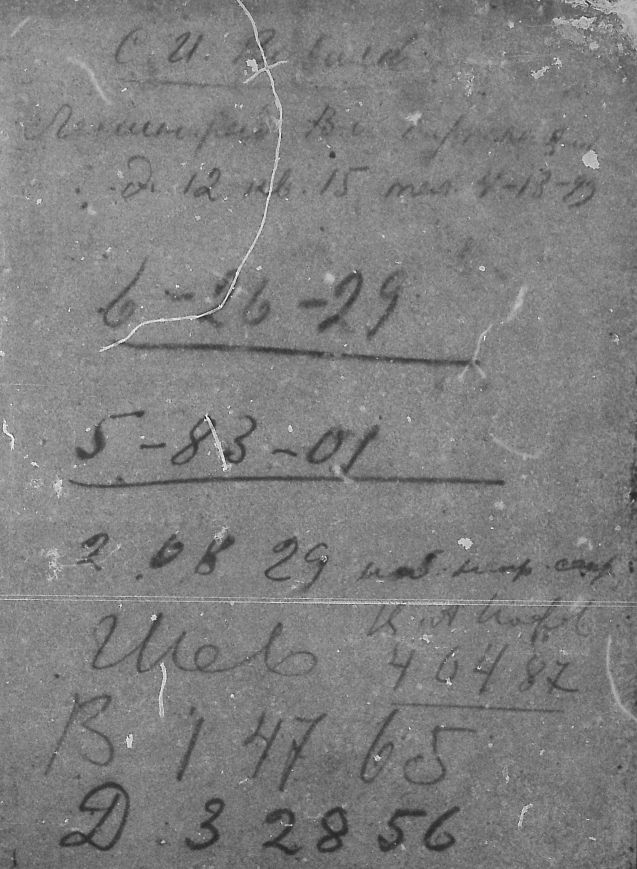 С. И. Вавилов
Ленинград В. о.
д. 12 кв. 15 тел. 4-13-99
6-26-29
5-83-01
2 08 29
Шев
4 04 87
В 1 47 65
Д 3 28 56